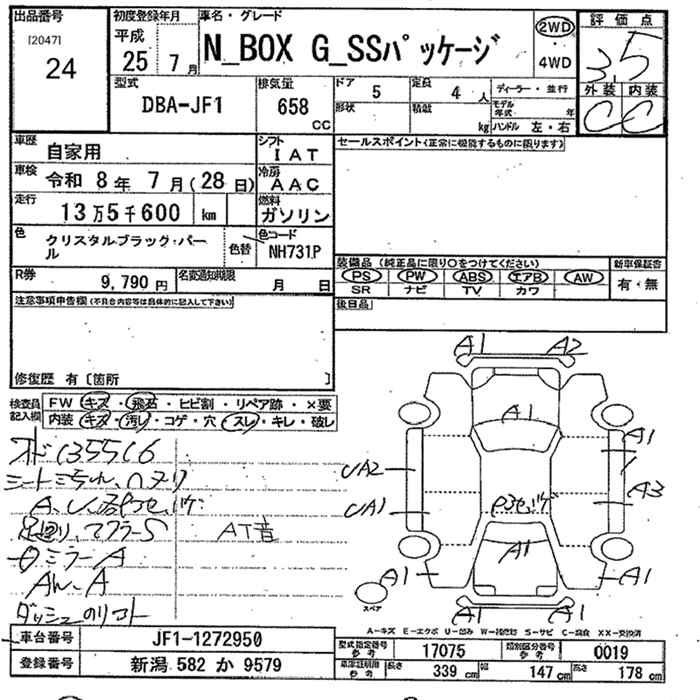 出品番号
[2047]
24
初度登録年月
平成
25 年 7 月
車名・グレード
N_BOX G_SSパッケージ
2WD
4WD
評価点
3.5
外装 内装
C C
型式
DBA-JF1
排気量
658 cc
ドア 5
定員 4 人
形状
積載 kg
ディーラー・並行
モデル年式 年
ハンドル 左・右
車歴 自家用
シフト IAT
車検 令和 8 年 7 月 (28 日)
冷房 AAC
走行 13万5千600 km
燃料 ガソリン
色 クリスタルブラック・パール
色替
色コード NH731P
R券 9,790 円
名変通知期限 月 日
セールスポイント(正常に機能するものに限ります)
装備品 (純正品に限り○をつけてください)
PS PW ABS エアB AW
SR ナビ TV カワ
新車保証書
有・無
後日品
注意事項申告欄(不具合内容等は具体的に記入して下さい)
修復歴 有 [箇所 ]
検査員記入欄
FW キズ・飛石・ヒビ割・リペア跡・×要
内装 キズ・汚レ・コゲ・穴・スレ・キレ・破レ
オド 135516
AT音
ミラーA
A1 A2
A1
A1
UA2
UA1
A3
A1
A1 A1
スペア
A1 A1
A-キズ E-エクボ U-凹み S-サビ C-腐食 XX-交換済
車台番号 JF1-1272950
登録番号 新潟 582 か 9579
型式指定番号 参考 17075
類別区分番号 参考 0019
参考 長さ 339 cm 幅 147 cm 高さ 178 cm